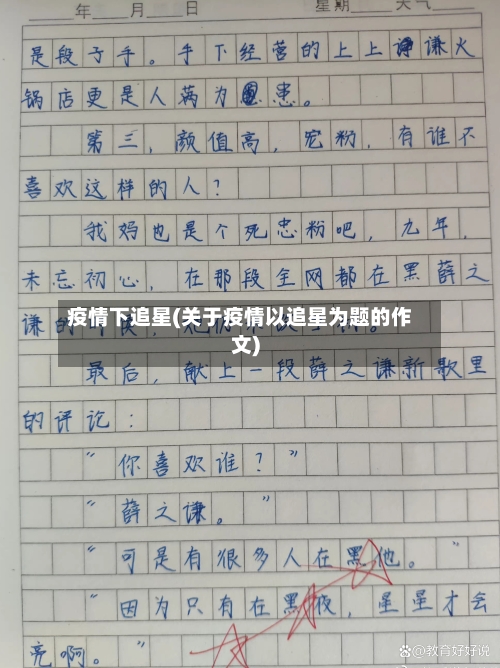 年 月 日 星期 天气
是段子手。手下经营的上上谦火
锅店更是人满为患。
第三，颜值高，宠粉，有谁不
喜欢这样的人？
我妈也是个死忠粉吧，九年，
未忘初心，在那段全网都在黑薛之
谦的时候，
疫情下追星(关于疫情以追星为题的作
文)
最后，献上一段薛之谦新歌里
的评论：
“你喜欢谁？”
“薛之谦。”
“可是有很多人在黑他。”
“因为只有在黑夜，星星才会
亮啊。”
@教育好好说